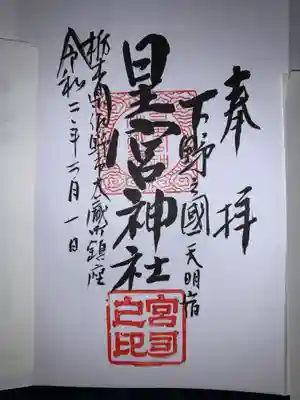 奉拝
下野之國 天明宿
星宮神社
栃木県佐野市大蔵町鎮座
令和二年 月一日
宮司之印